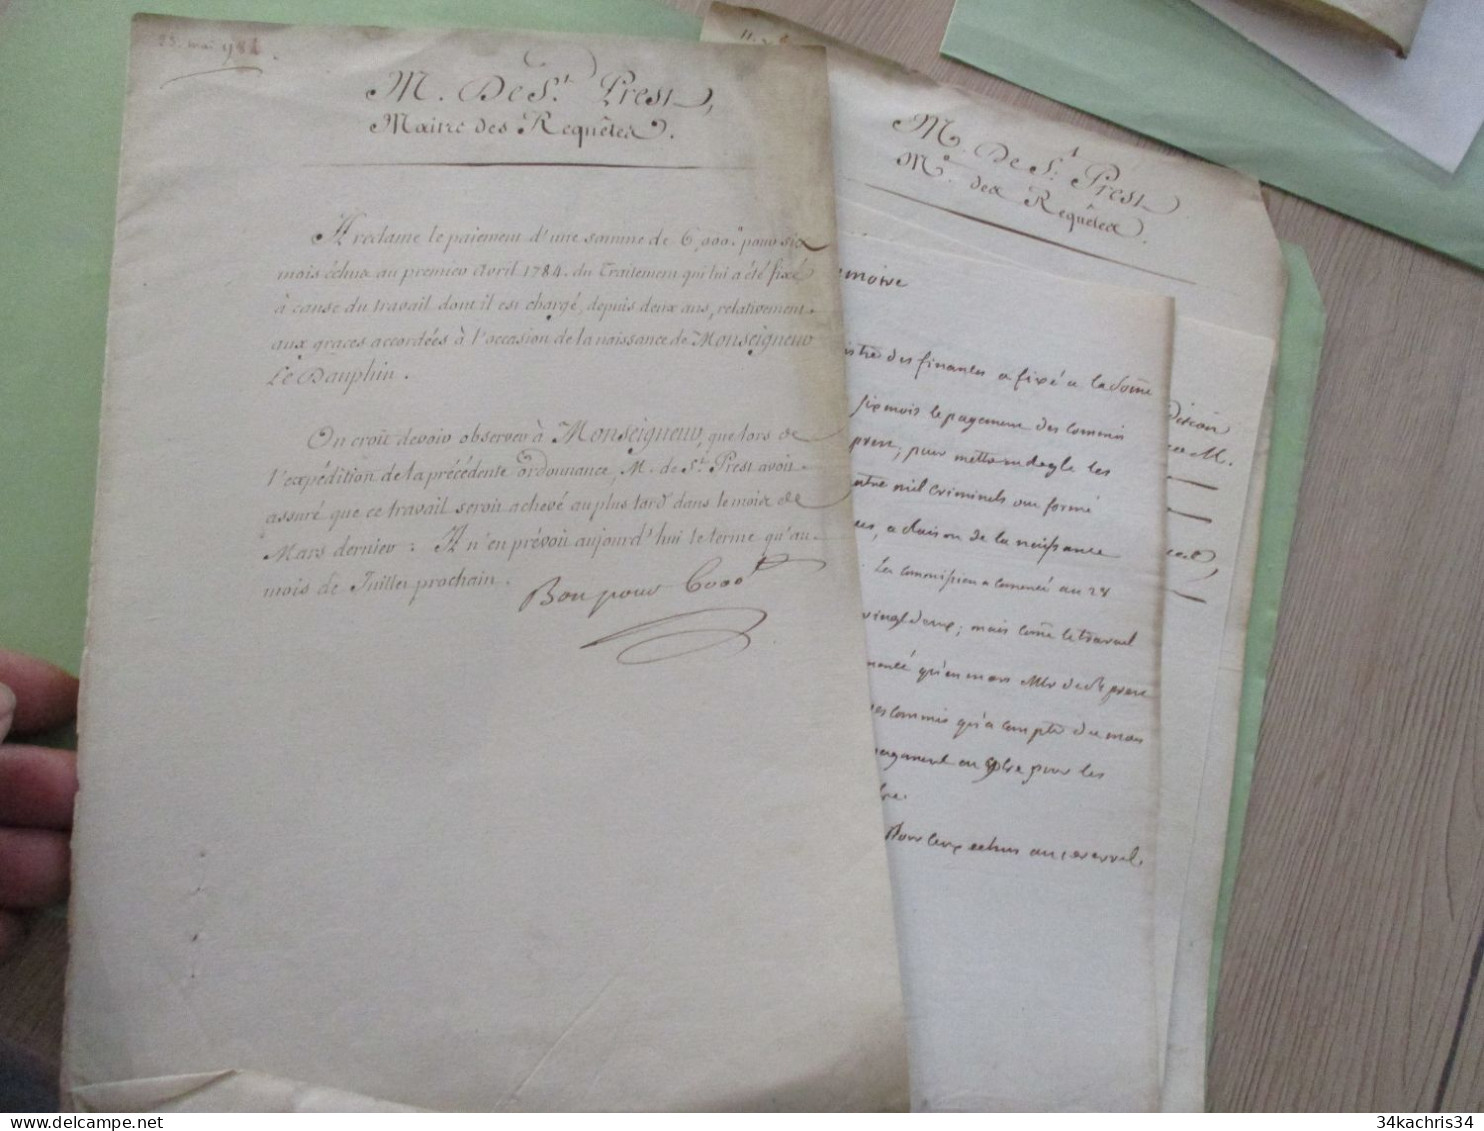 25. mai 1784.
M. De St. Prest,
Maitre des Requêtes.
Il réclame le paiement d'une somme de 6,000.# pour six
mois échus au premier Avril 1784. du Traitement qui lui a été fixé
à cause du travail dont il est chargé, depuis deux ans, relativement
aux graces accordées à l'occasion de la naissance de Monseigneur
Le Dauphin.
On croit devoir observer à Monseigneur, que lors de
l'expédition de la précédente ordonnance, M. de St. Prest avoit
assuré que ce travail seroit achevé au plus tard dans le mois de
Mars dernier : Il n'en prévoit aujourd'hui le terme qu'au
mois de Juillet prochain.
Bon pour 6000#
M. De St. Prest
Me. des Requêtes.
emoire
istre des finances a fixé a la Some
six mois le payement des commis
prest, pour mettre en regle les
atre mil criminels ont formé
a raison de la naissance
Les commission a comencé au 28
vingt deux; mais come le travail
mencé qu'en mars Mr de St prest
ses commis qu'a compter du mois
payement en pour les
bre.
Pour ceux echus au 1er avril
M.
34kachris34